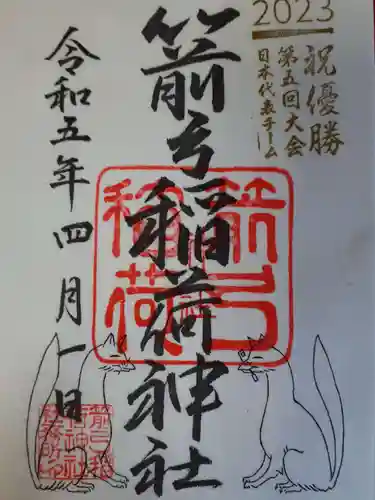 2023
祝優勝
第五回大会
日本代表チーム
箭弓稲荷神社
令和五年四月一日
箭弓稲荷